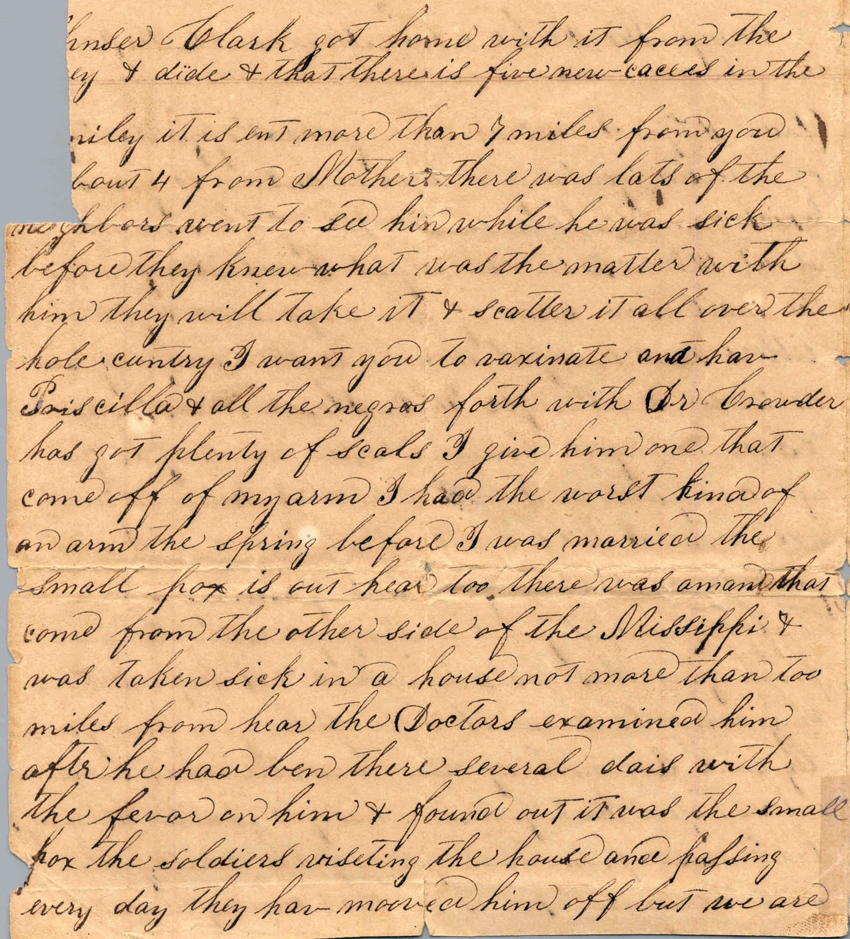 Clark got home with it from the
ey & dide & that there is five new cacees in the
miley it is ent more than 7 miles from you
bout 4 from Mother there was lats of the
neighbors went to see him while he was sick
before they knew what was the matter with
him they will take it & scatter it all over the
hole cuntry I want you to vaxinate and hav
Priscilla & all the negros forth with Dr Crowder
has got plenty of scals I give him one that
come off of my arm I had the worst kind of
an arm the spring before I was married the
small pox is out hear too there was a man that
come from the other side of the Missippi &
was taken sick in a house not more than too
miles from hear the Doctors examined him
aftr he had ben there several dais with
the fevor on him & found out it was the small
pox the soldiers viseting the house and passing
every day they hav mooved him off but we are